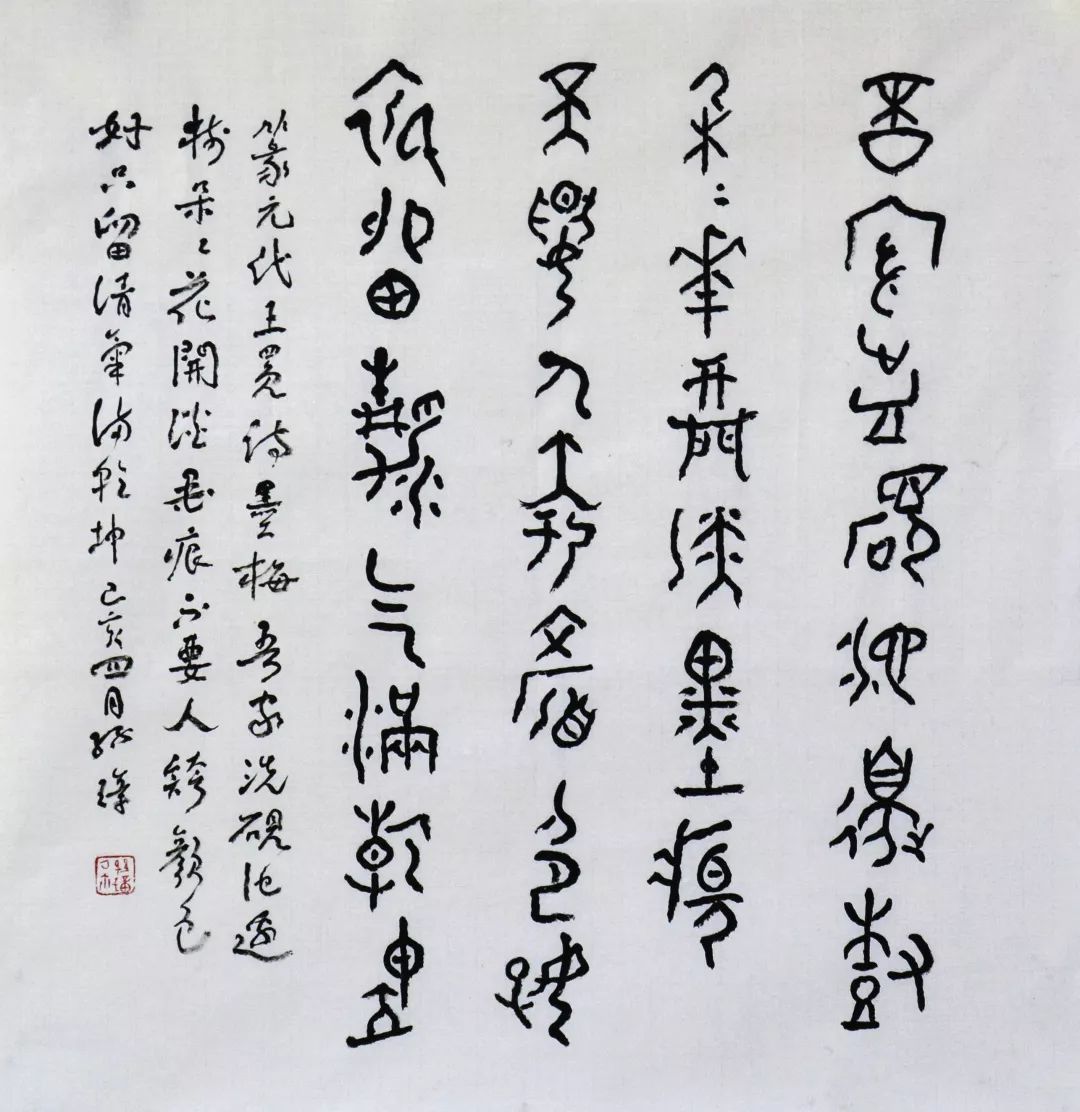 吾家洗硯池邊樹
朵〻華開淡墨痕
不要人夸顏色好
只留清氣滿乾坤
篆元代王冕詩墨梅吾家洗硯池邊
樹朵〻花開淡墨痕不要人誇顏色
好只留清氣滿乾坤己亥四月